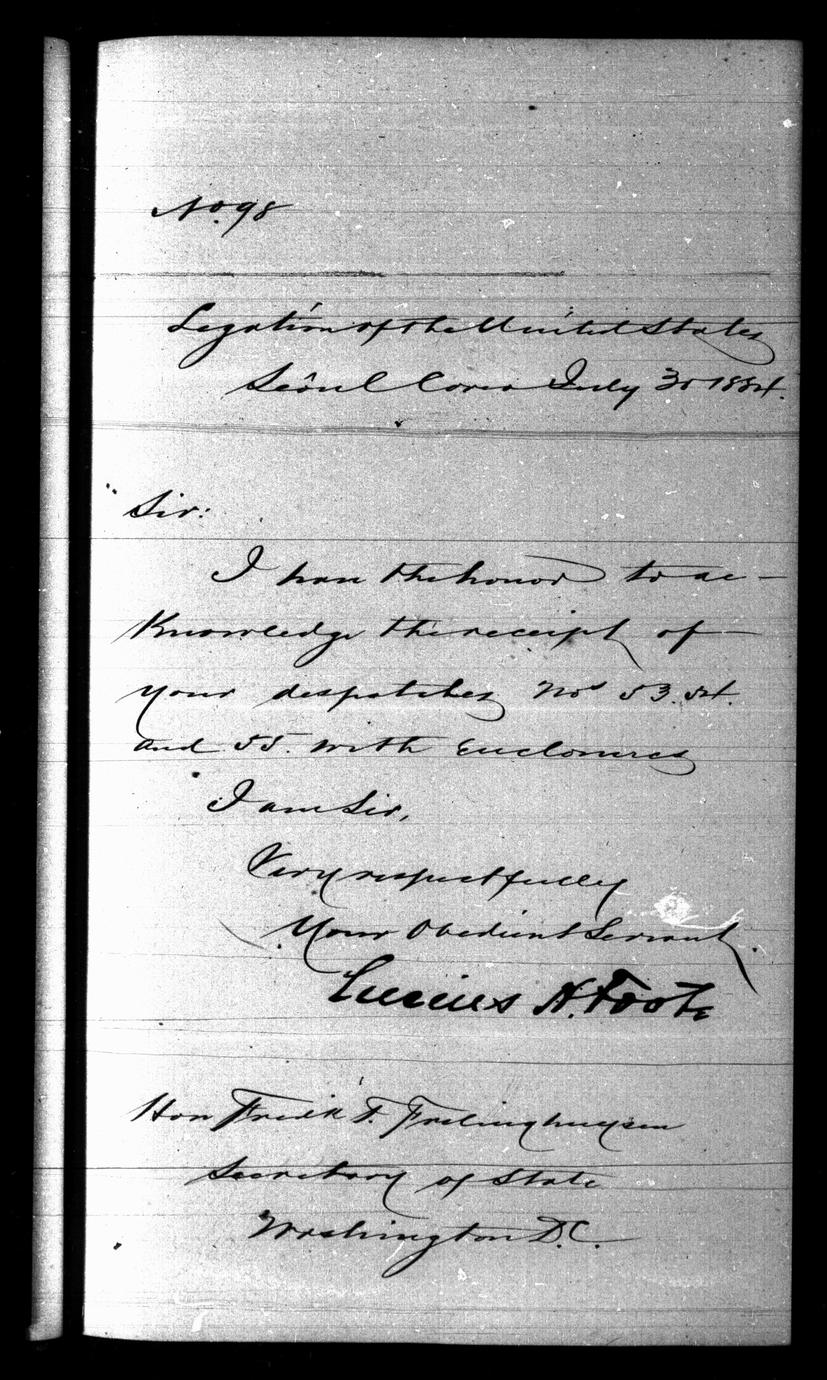 No. 98
Legation of the United States
Seoul Corea July 30 1884.
Sir:
I have the honor to ac-
knowledge the receipt of
your despatches Nos 53. 54.
and 55. with enclosures
I am Sir,
Very respectfully
Your Obedient Servant.
Lucius H. Foote
Hon Fredk T. Frelinghuysen
Secretary of State
Washington D.C.